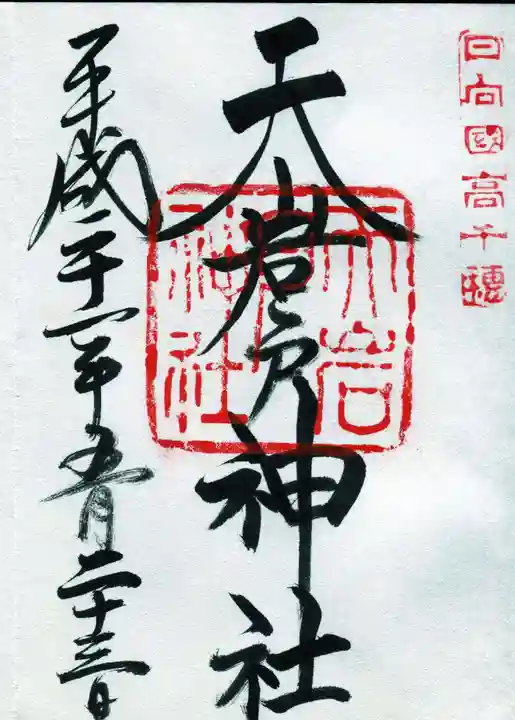 日向国高千穂
天岩戸神社
天岩
神社
平成二十一年五月二十三日